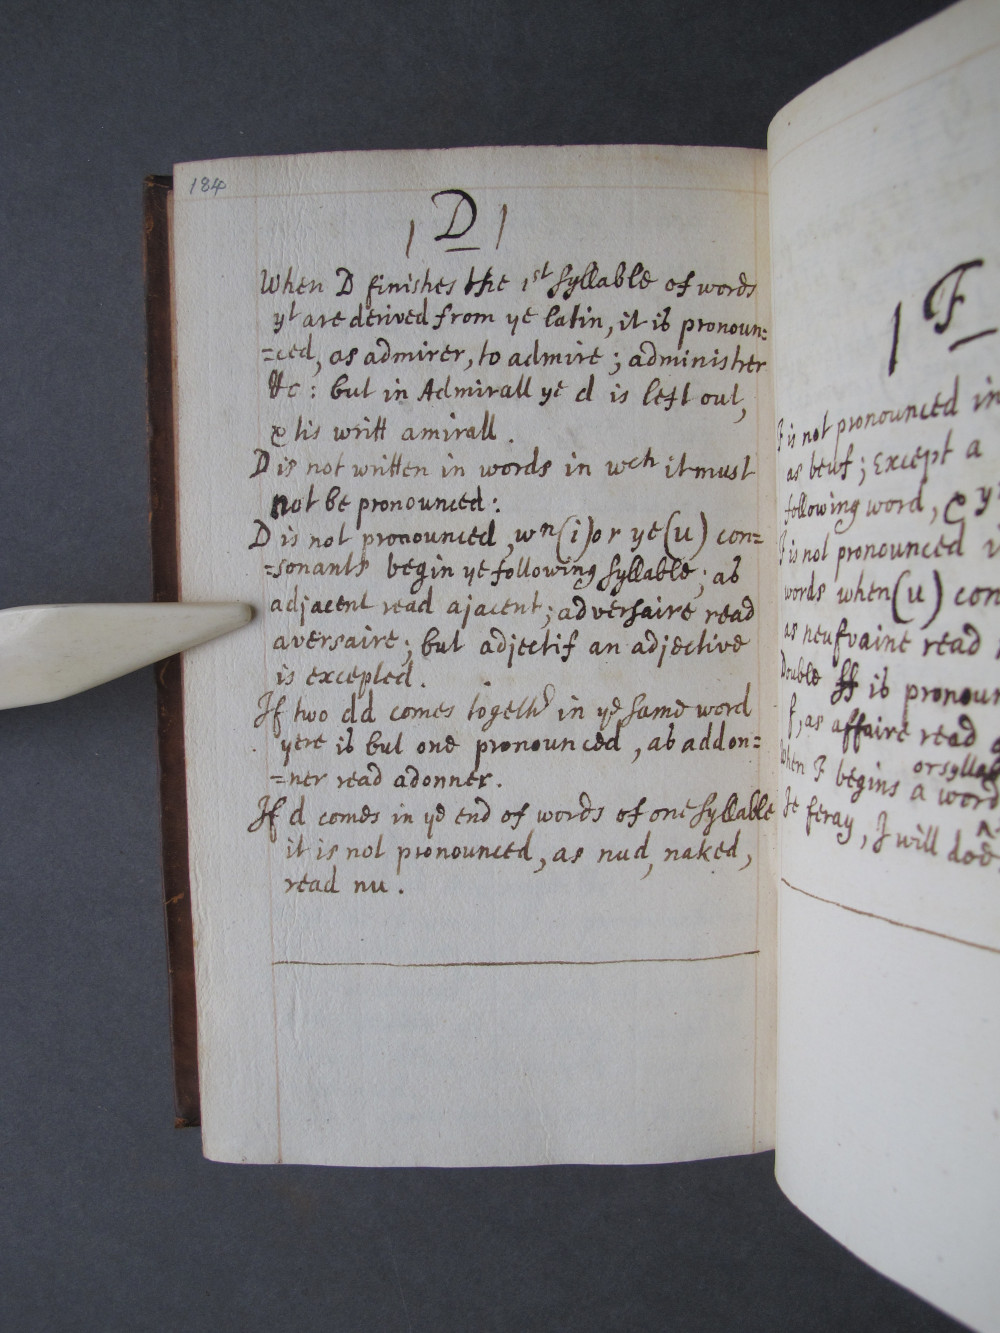 184
D
When D finishes the 1st syllable of words
yt are derived from ye latin, it is pronoun=
=ced, as admirer, to admire; administrer
&c: but in Admirall ye d is left out,
& tis writt amirall.
D is not written in words in wch it must
not be pronounced:
D is not pronounced, wn (i) or ye (u) con=
=sonants begin ye following syllable; as
adjacent read ajacent; adversaire read
aversaire; but adjectif an adjective
is excepted.
If two dd comes together in ye same word
yere is but one pronounced, as addon=
=ner read adonner.
If d comes in ye end of words of one syllable
it is not pronounced, as nud, naked,
read nu.
F
F is not pronounced in
as beuf; Except a
following word, &
F is not pronounced
words when (u) con
as neufvaine read
Double ff is pronoun
f, as affaire read
or syllab
When F begins a word
Je feray, I will doe